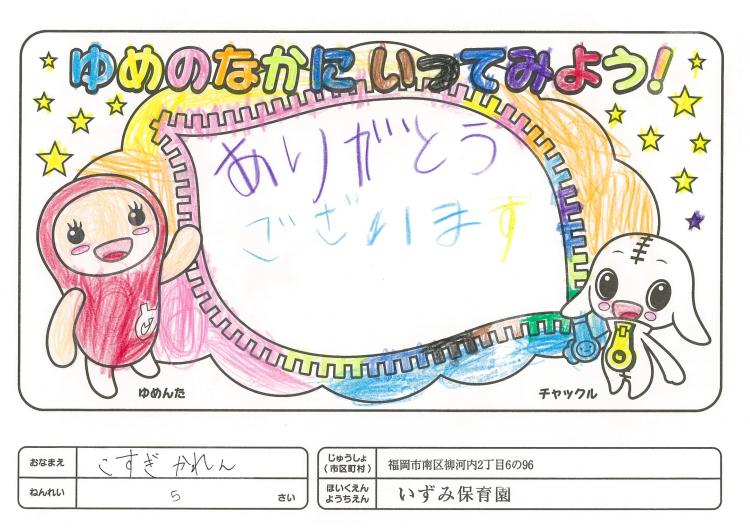 ゆめのなかにいってみよう!
ありがとう
ございます
ゆめんた
チャックル
おなまえ こすぎ かれん
ねんれい 5 さい
じゅうしょ(市区町村) 福岡市南区柳河内2丁目6の96
ほいくえん ようちえん いずみ保育園